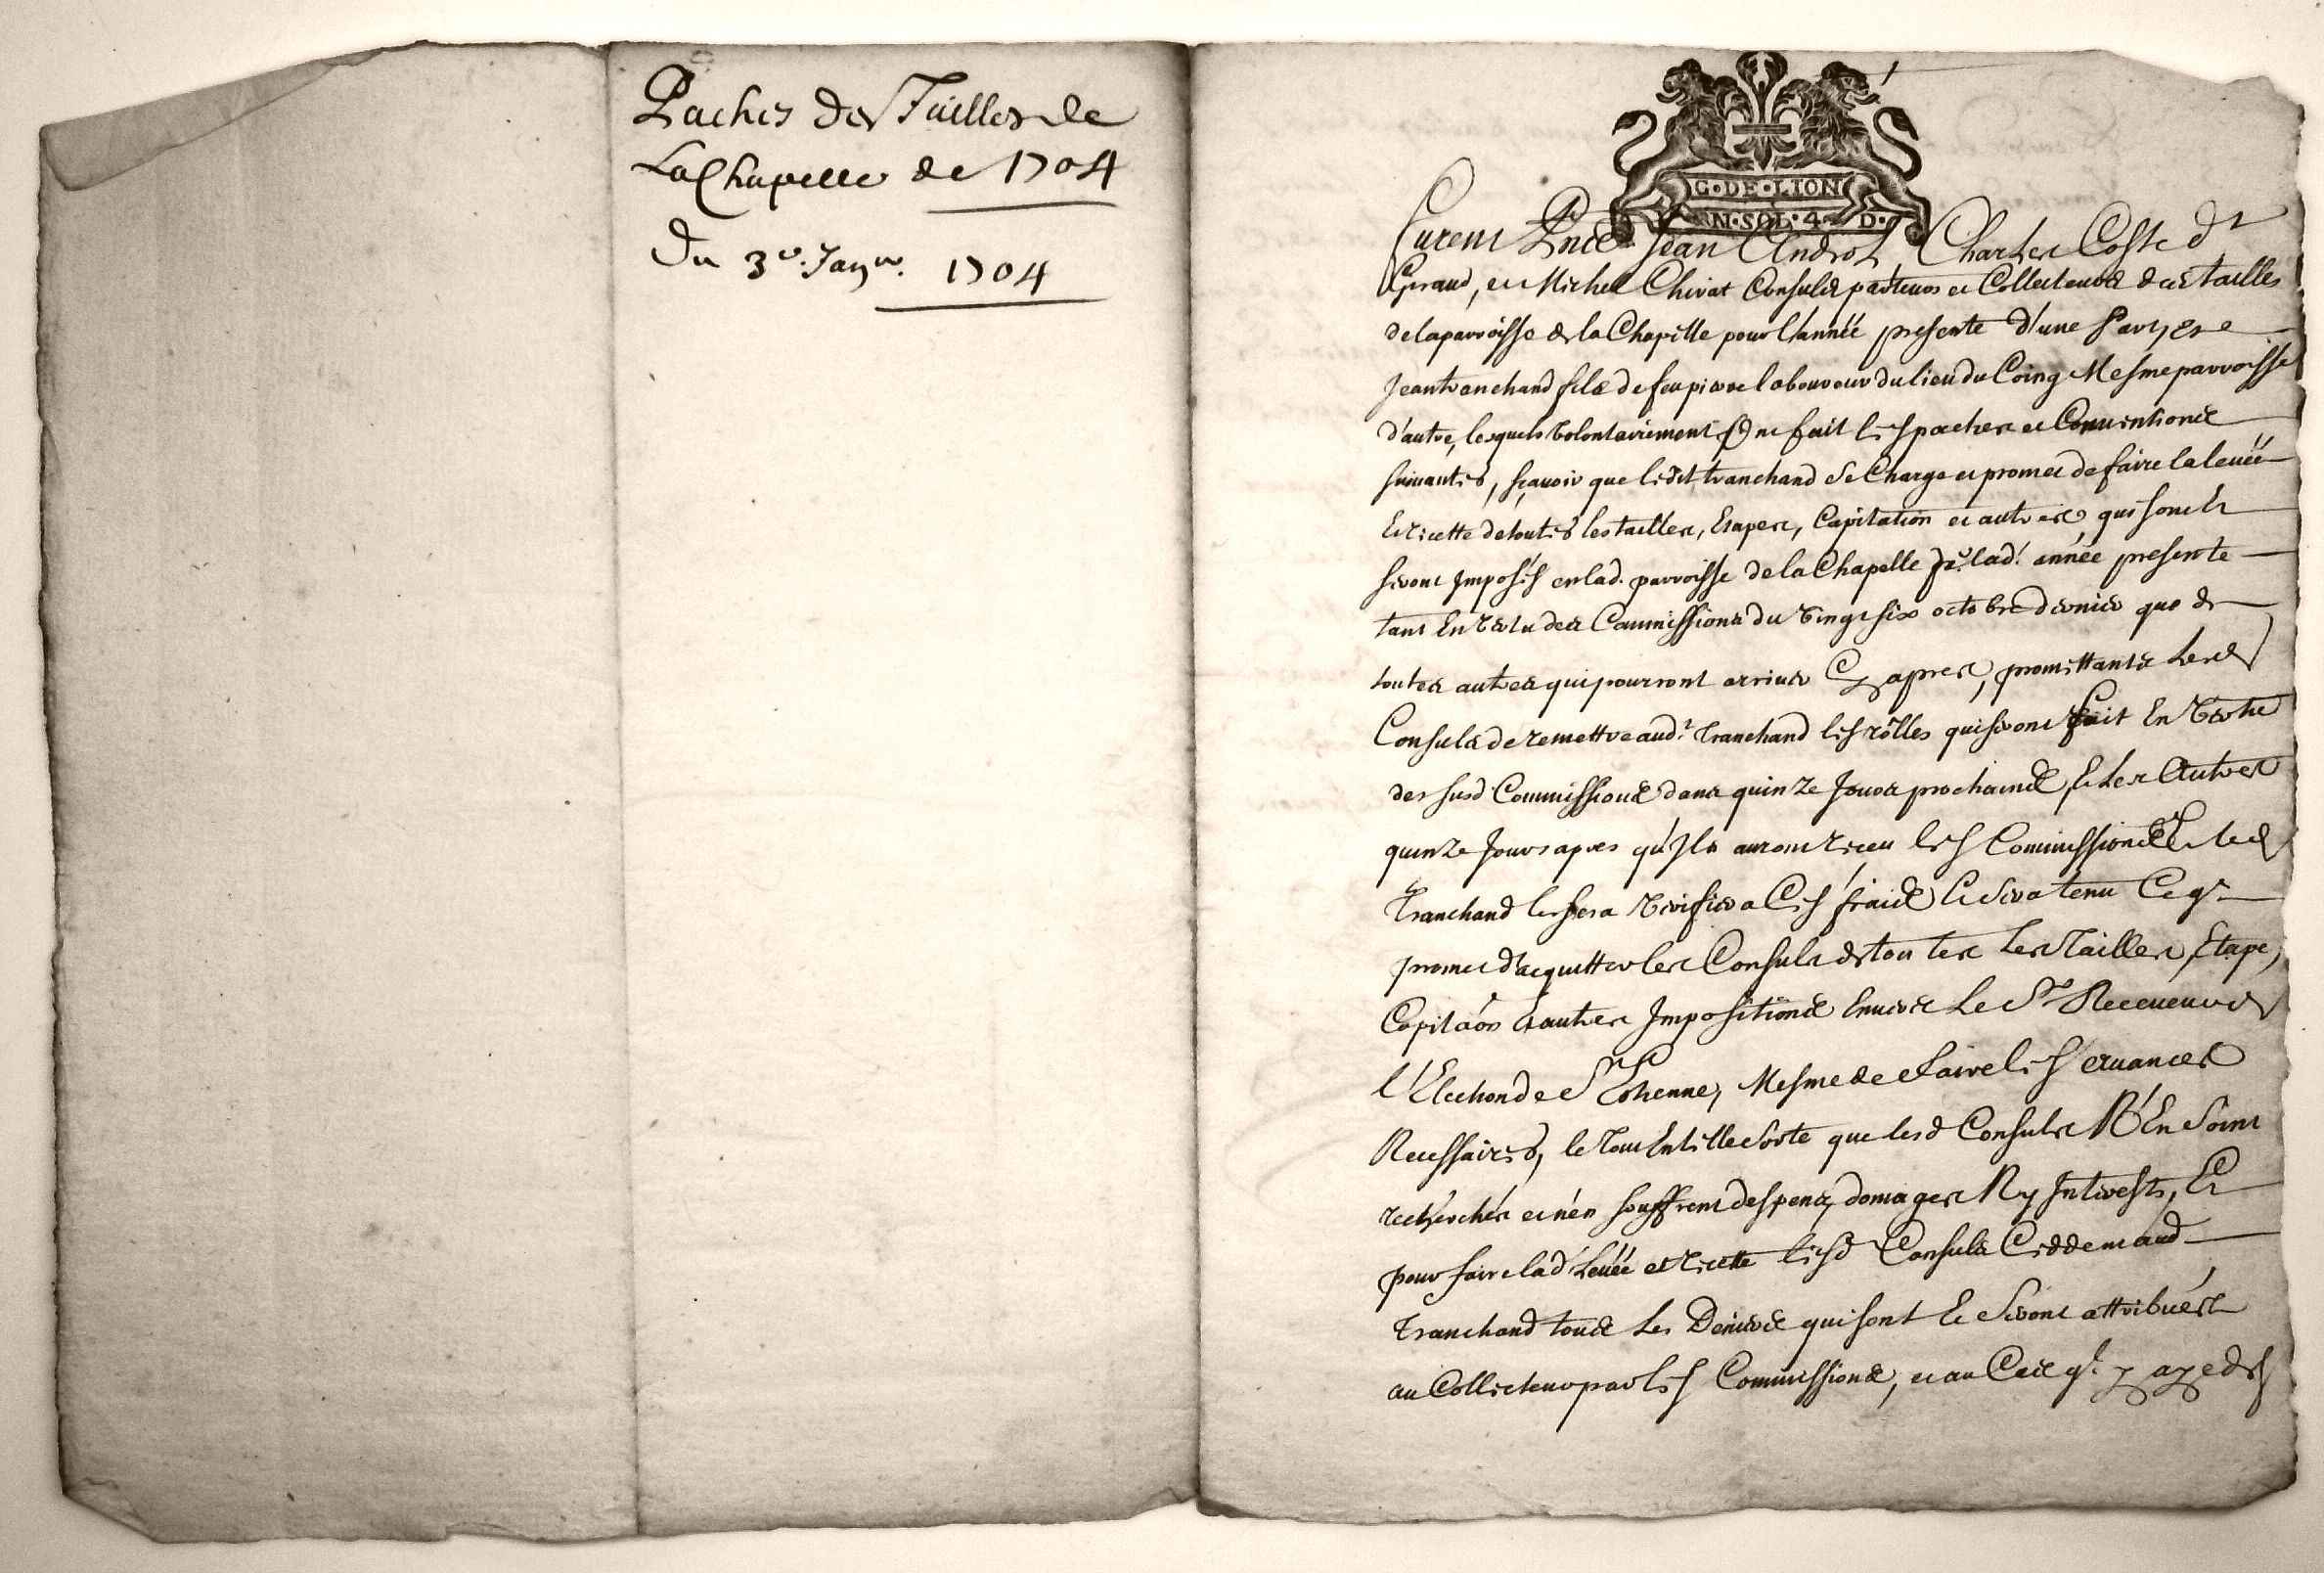 Paches des Tailles de
La Chapelle de 1704
Du 3e. Janvr. 1704
G·DE·LION
N·SOL·4·D·
Furent Pntz Jean Androt, Charles Coste dt
Giraud, et Michel Chirat Consulz parteurs et Collecteurs des tailles
de laparroisse de la Chapelle pour l'année presente d'une part, et
Jean tranchand filz de feu pierre laboureur du lieu du Coing Mesme parroisse
d'autre, lesquels volontairement Ont fait les paches et Conventions
suivantes, sçavoir que ledit tranchand se Charge et promet de faire la levée
Et recette de toutes les tailles, Etapes, Capitation et autres, qui sont Et
seront Imposés en lad. parroisse de la Chapelle pr. lad. année presente
tant En vertu des Commissions du vingt six octobre dernier que de
toutes autres qui pourront arriver Cy apres, promettants Lesd
Consulz de remettre aud. Tranchand les rôlles qui seront fait En vertu
des susd. Commissions dans quinze Jours prochains, Et Les Autres
quinze Jours apres qu'Ils auront receu les Commissions Et led
Tranchand les fera verifier a Ces fraids Et sera tenu Ce qe
promet d'acquitter les Consulz de toutes Les Tailles, Etape,
Capitâon Et autres Impositions Envers Le Sr Receveur de
l'Election de St Etienne, Mesme de faire les avances
Necessaires, le Tout En telle sorte que lesd Consulz N'En soint
recherchés et n'en souffrent despens, domages Ny Interests, Et
pour faire lad. Levée et recette lesd Consulz Cedde
Tranchand tous Les Deniers qui sont Et seront attribués
au Collecteur par les Commissions, et au Cas qe. y aye des